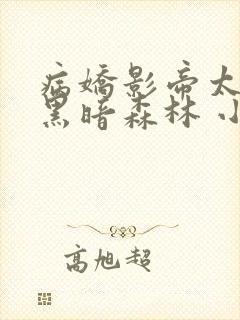 病娇影帝太
黑暗森林 小
高旭超